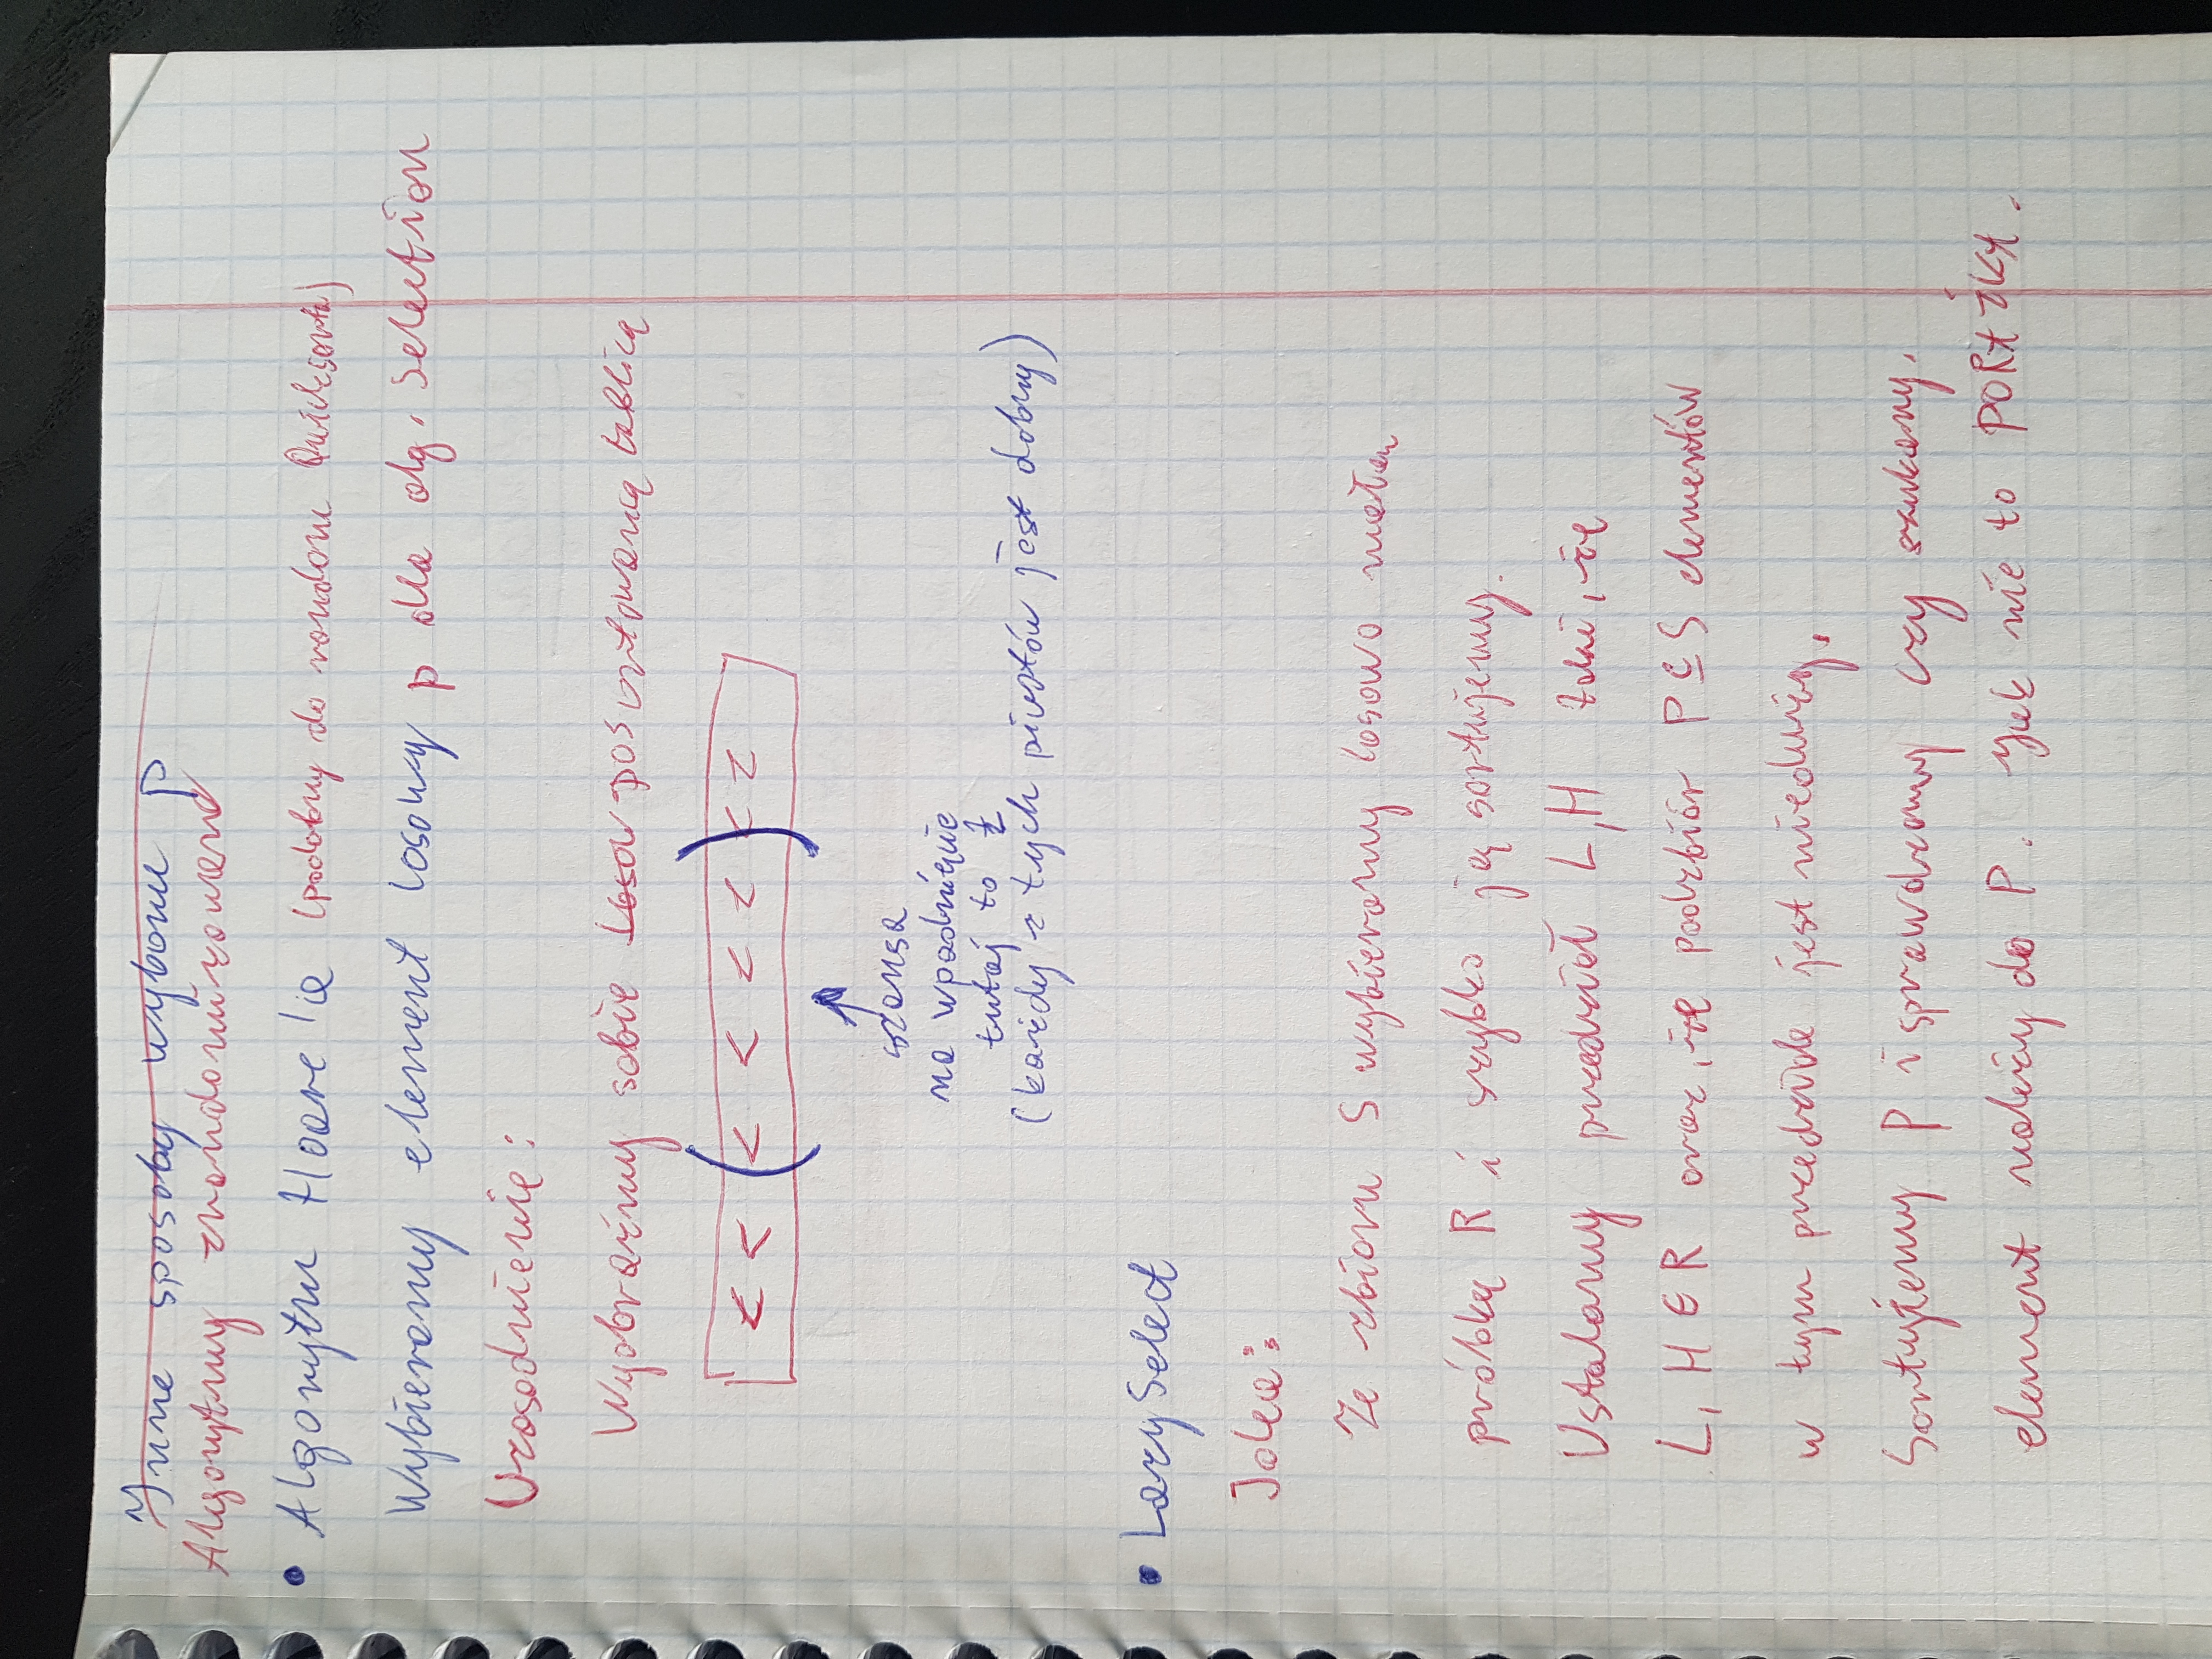 Inne sposoby wyboru p
Algorytmy zrandomizowane
• Algorytm Hoare'a (podobny do random Quicksorta)
Wybieramy element losowy p dla alg. Selection
Uzasadnienie:
Wyobraźmy sobie losow posortowaną tablicą
< < ( < < < < ) < <
szansa
na wpadnięcie
tutaj to ½
(każdy z tych pivotów jest dobry)
• LazySelect
Idea:
Ze zbioru S wybieramy losowo małą
próbkę R i szybko ją sortujemy.
Ustalamy przedział L,H taki, że
L, H ∈ R oraz, że podzbiór P ⊆ S elementów
w tym przedziale jest nieduży.
Sortujemy P i sprawdzamy czy szukany.
element należy do P. Jak nie to